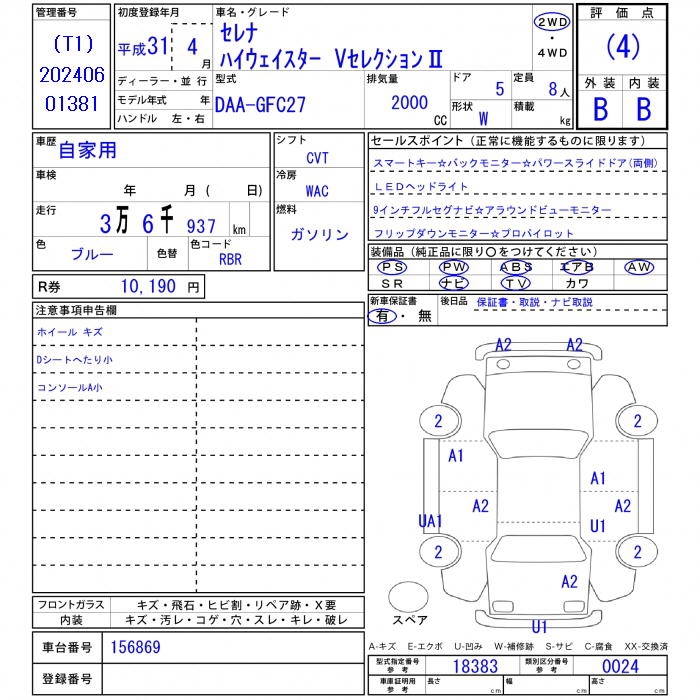 管理番号
(T1)
202406
01381
初度登録年月
平成31
4月
車名・グレード
セレナ
ハイウェイスター Vセレクション Ⅱ
2WD
・
4WD
評価点
(4)
外装 内装
B B
ディーラー・並行
モデル年式 年
ハンドル 左・右
型式
DAA-GFC27
排気量
2000
CC
ドア
5
定員
8人
形状
W
積載
kg
車歴
自家用
車検
年 月( 日)
走行
3万6千937km
色
ブルー
色替
色コード
RBR
シフト
CVT
冷房
WAC
燃料
ガソリン
セールスポイント(正常に機能するものに限ります)
スマートキー☆バックモニター☆パワースライドドア(両側)
LEDヘッドライト
9インチフルセグナビ☆アラウンドビューモニター
フリップダウンモニター☆プロパイロット
装備品(純正品に限り〇をつけてください)
PS PW ABS エアB AW
SR ナビ TV カワ
R券
10,190円
新車保証書
有・無
後日品
保証書・取説・ナビ取説
注意事項申告欄
ホイール キズ
Dシートへたり小
コンソールA小
A2 A2
2 2
A1
A1
A2 A2
UA1 U1
2 2
A2
スペア
U1
フロントガラス
キズ・飛石・ヒビ割・リペア跡・X要
内装
キズ・汚レ・コゲ・穴・スレ・キレ・破レ
A-キズ E-エクボ U-凹み W-補修跡 S-サビ C-腐食 XX-交換済
車台番号
156869
登録番号
型式指定番号
参考
18383
類別区分番号
参考
0024
車庫証明用
参考
長さ
cm
幅
cm
高さ
cm